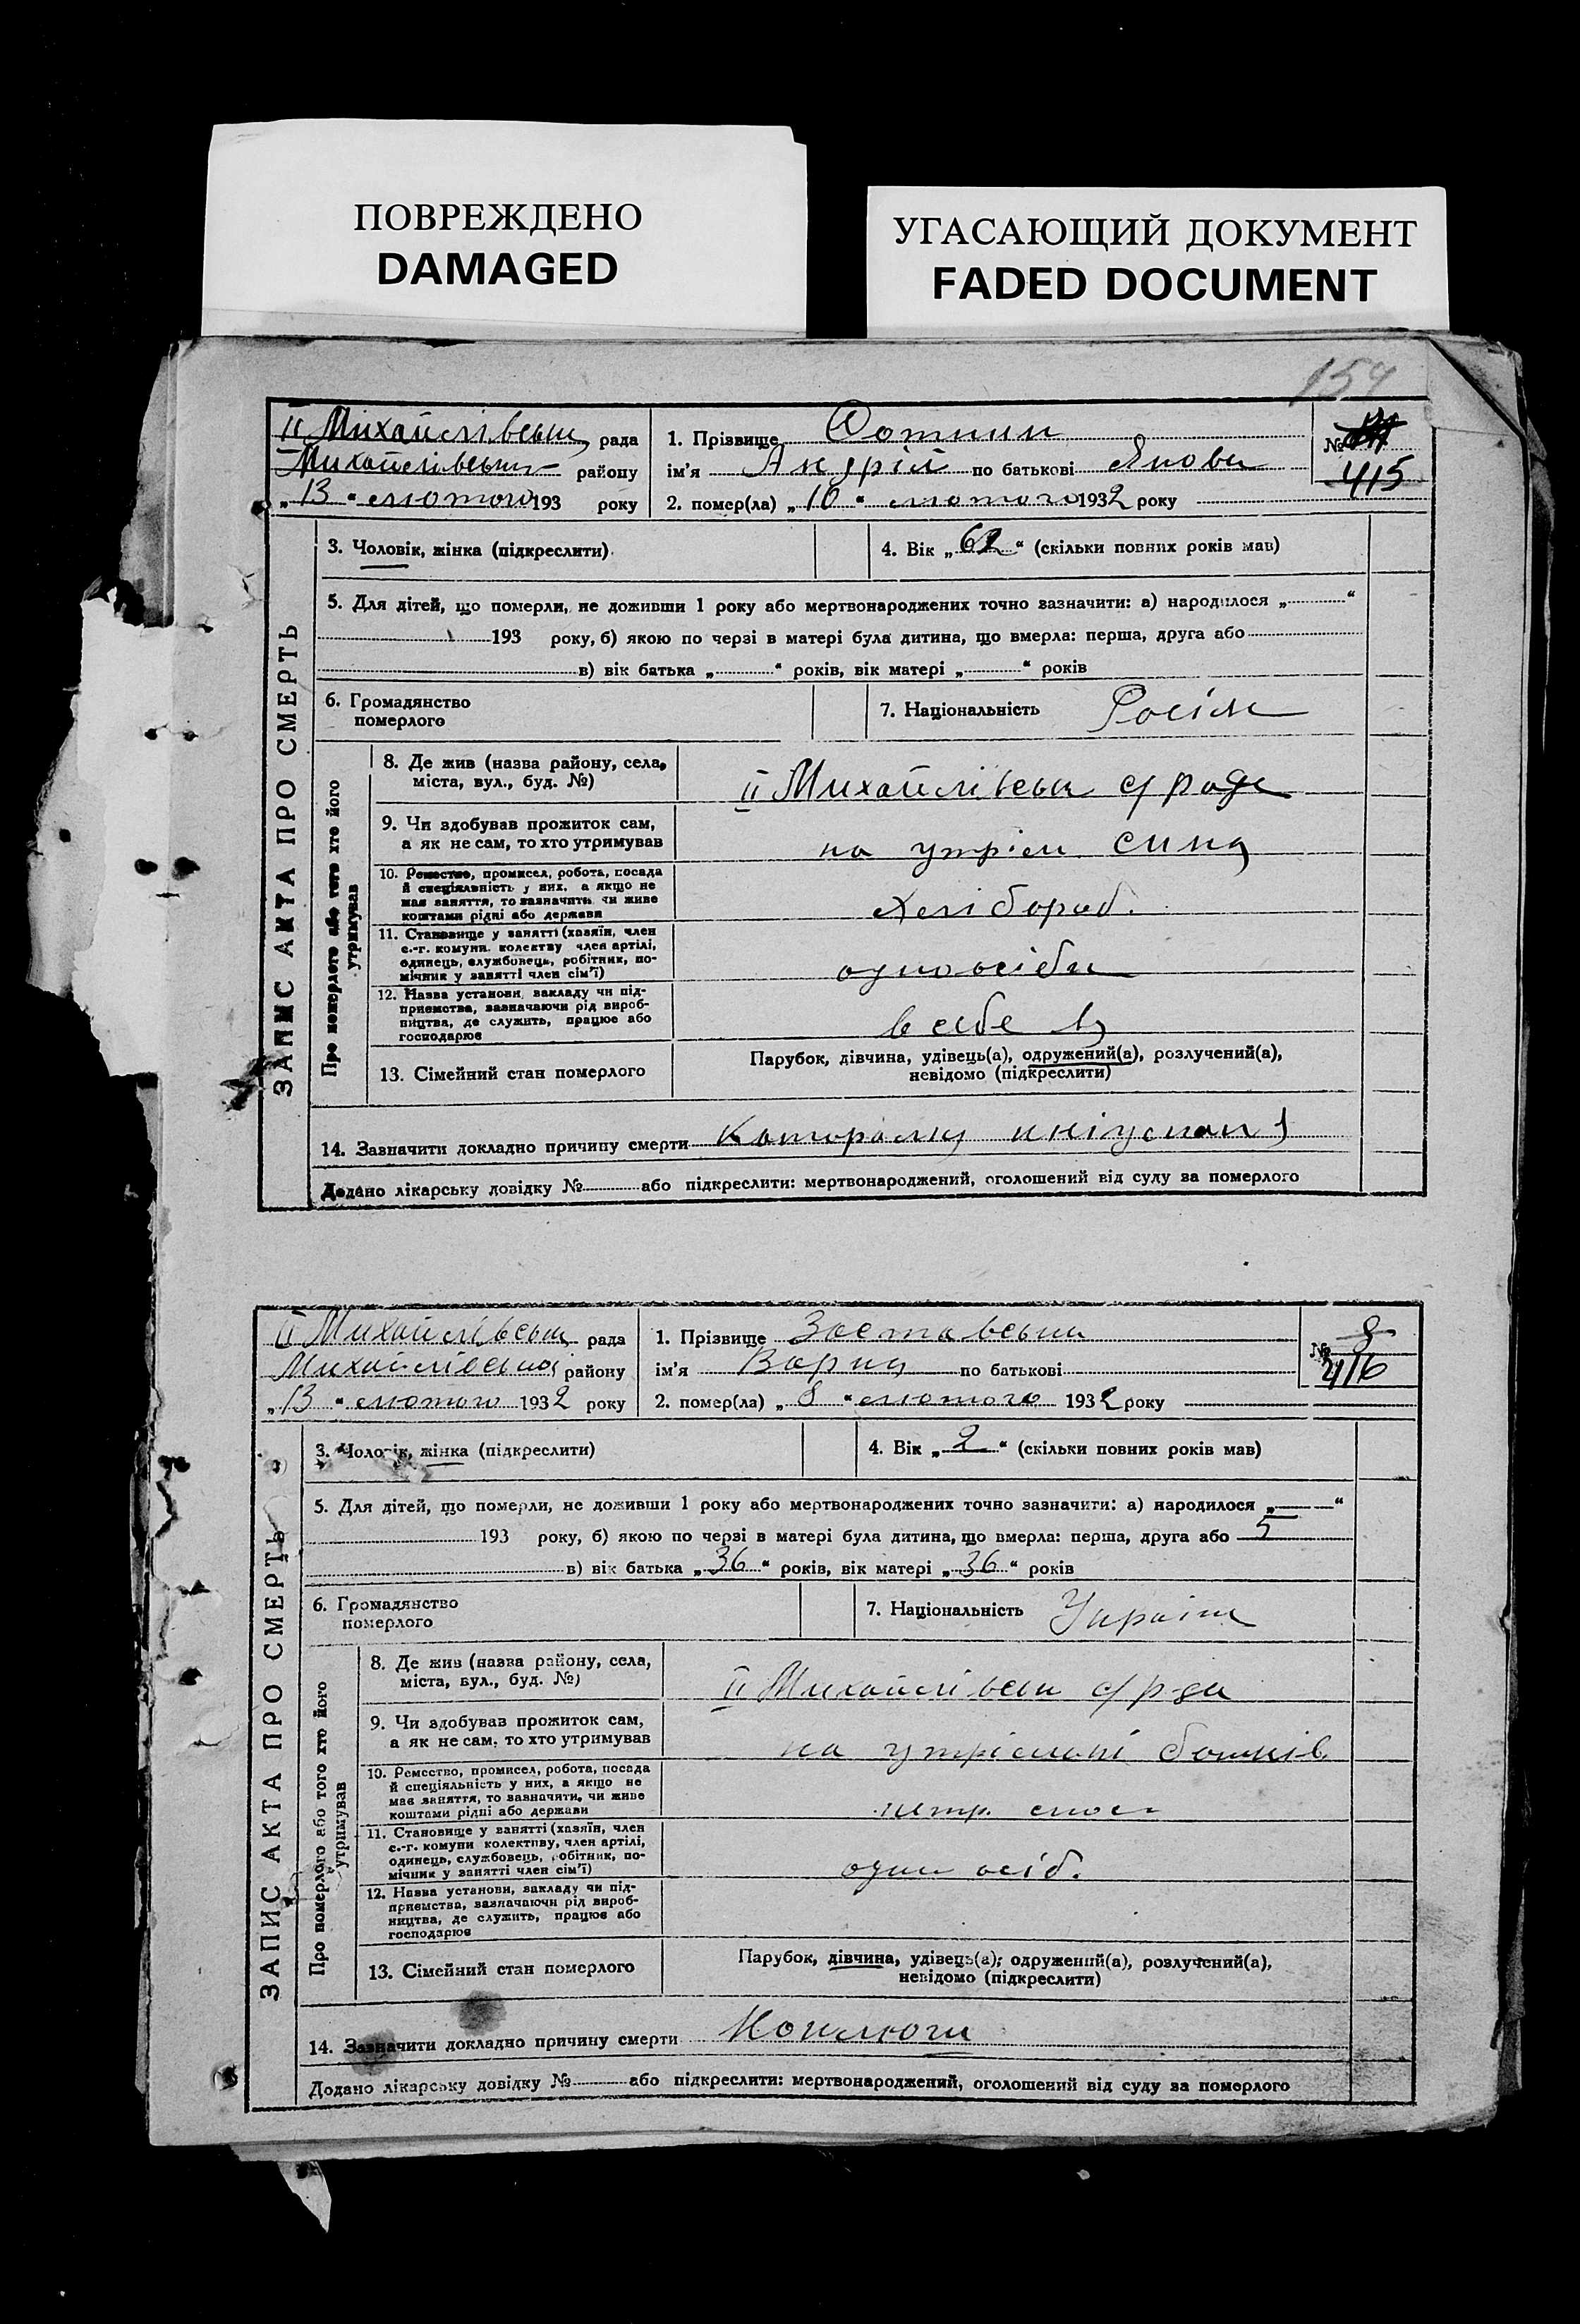 ПОВРЕЖДЕНО
DAMAGED
УГАСАЮЩИЙ ДОКУМЕНТ
FADED DOCUMENT
ЗАПИС АКТА ПРО СМЕРТЬ
II Михайлівськ рада
Михайлівськ району
„13“ лютого 193 року
1. Прізвище
ім'я Андрій по батькові Якови
2. помер(ла) „10“ лютого 1932 року
№
415
3. Чоловік, жінка (підкреслити).
4. Вік „62“ (скільки повних років мав)
5. Для дітей, що померли, не доживши 1 року або мертвонароджених точно зазначити: а) народилося „ “
193 року, б) якою по черзі в матері була дитина, що вмерла: перша, друга або
в) вік батька „ “ років, вік матері „ “ років
6. Громадянство
померлого
7. Національність Росіян
Про померлого або того хто його
утримував
8. Де жив (назва району, села,
міста, вул., буд. №)
II Михайлівськ с/рада
9. Чи здобував прожиток сам,
а як не сам, то хто утримував
на утрім. сина
10. Ремество, промисел, робота, посада
й спеціяльність у них, а якщо не
мав заняття, то зазначить чи живе
коштами рідні або держави
хлібороб.
11. Становище у занятті (хазяїн, член
с.-г. комуни, колективу член артілі,
одинець, службовець, робітник, по-
мічник у занятті член сім'ї)
одноосібн
12. Назва установи, закладу чи під-
приємства, зазначаючи рід вироб-
ництва, де служить, працює або
господарює
в себе
13. Сімейний стан померлого
Парубок, дівчина, удівець(а), одружений(а), розлучений(а),
невідомо (підкреслити)
14. Зазначити докладно причину смерти
Додано лікарську довідку № або підкреслити: мертвонароджений, оголошений від суду за померлого
ЗАПИС АКТА ПРО СМЕРТЬ
II Михайлівськ рада
Михайлівськ району
„13“ лютого 1932 року
1. Прізвище Заставськи
ім'я по батькові
2. помер(ла) „8“ лютого 1932 року
8
№
416
3. Чоловік, жінка (підкреслити)
4. Вік „2“ (скільки повних років мав)
5. Для дітей, що померли, не доживши 1 року або мертвонароджених точно зазначити: а) народилося „—“
193 року, б) якою по черзі в матері була дитина, що вмерла: перша, друга або 5
в) вік батька „36“ років, вік матері „36“ років
6. Громадянство
померлого
7. Національність Україн
Про померлого або того хто його
утримував
8. Де жив (назва району, села,
міста, вул., буд. №)
II Михайлівськ с/рда
9. Чи здобував прожиток сам,
а як не сам, то хто утримував
на утріманні батьків
10. Ремество, промисел, робота, посада
й спеціяльність у них, а якщо не
має заняття, то зазначити, чи живе
коштами рідні або держави
11. Становище у занятті (хазяїн, член
с.-г. комуни колективу, член артілі,
одинець, службовець, робітник, по-
мічник у занятті член сім'ї)
один осіб.
12. Назва установи, закладу чи під-
приємства, зазначаючи рід вироб-
ництва, де служить, працює або
господарює
13. Сімейний стан померлого
Парубок, дівчина, удівець(а), одружений(а), розлучений(а),
невідомо (підкреслити)
14. Зазначити докладно причину смерти
Додано лікарську довідку № або підкреслити: мертвонароджений, оголошений від суду за померлого